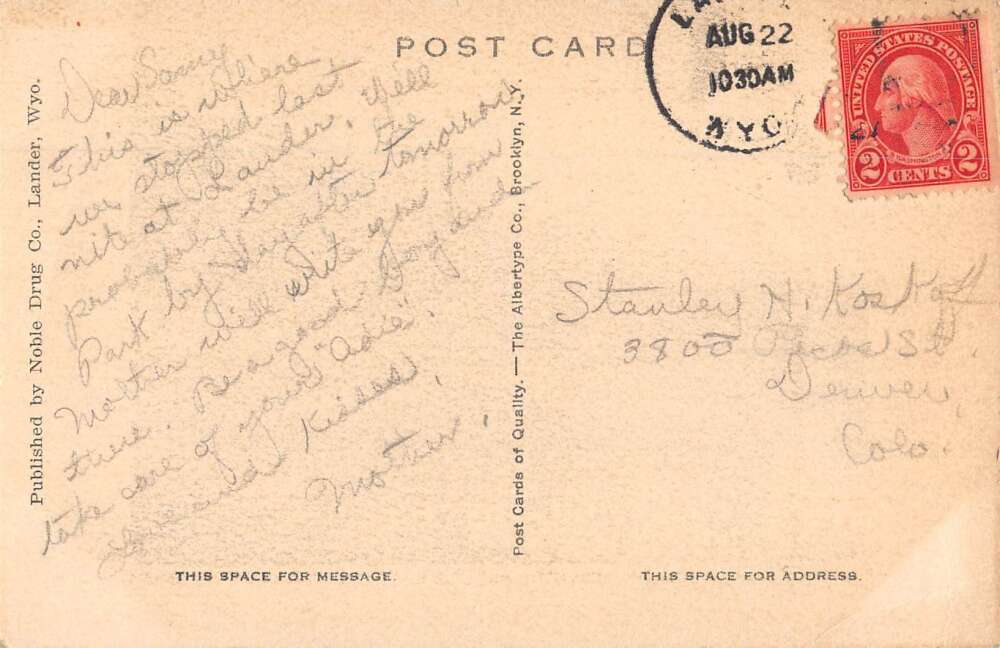 POST CARD
Published by Noble Drug Co., Lander, Wyo.
Dear Sonny
This is where
we stopped last
nite at Lander. Will
probably be in the
Park by day after tomorrow
Mother will write you from
there. Be a good boy and
take care of your "Adie".
Love and Kisses,
Mother.
THIS SPACE FOR MESSAGE.
Post Cards of Quality. — The Albertype Co., Brooklyn, N.Y.
AUG 22
1030AM
WYO
UNITED STATES POSTAGE
WASHINGTON
2 CENTS 2
Stanley H. Koskoff
3800 St.
Denver,
Colo.
THIS SPACE FOR ADDRESS.